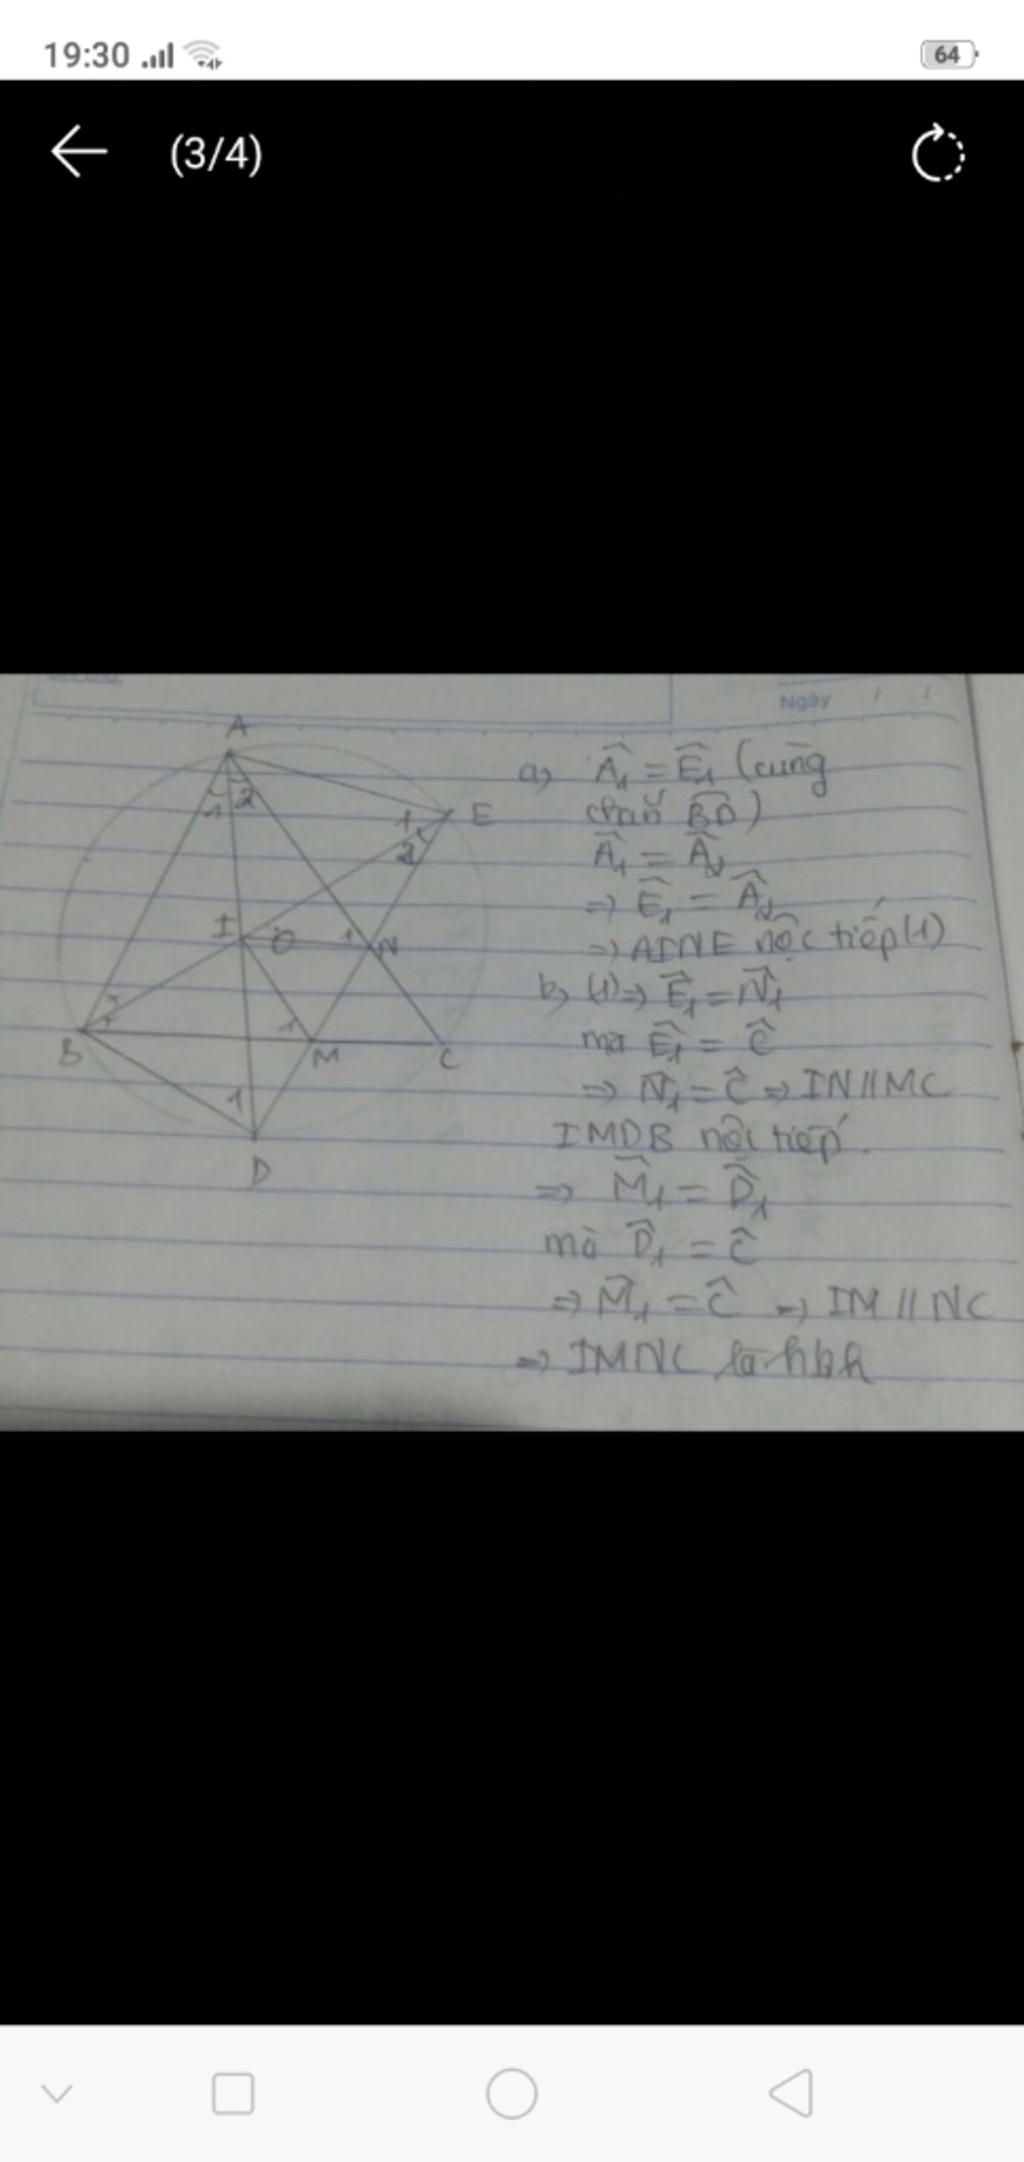 19:30
64
(3/4)
Ngày / /
A
1 2
1 E
2
I O 1 N
B 1 M C
1
D
a) Â₁ = Ê₁ (cùng
chắn BD)
Â₁ = Â₂
=> Ê₁ = Â₂
=> AINE nội tiếp (1)
b) (1) => Ê₁ = N̂₁
mà Ê₁ = Ĉ
=> N̂₁ = Ĉ => IN // MC
IMDB nội tiếp
=> M̂₁ = D̂₁
mà D̂₁ = Ĉ
=> M̂₁ = Ĉ => IM // NC
=> IMNC là hbh